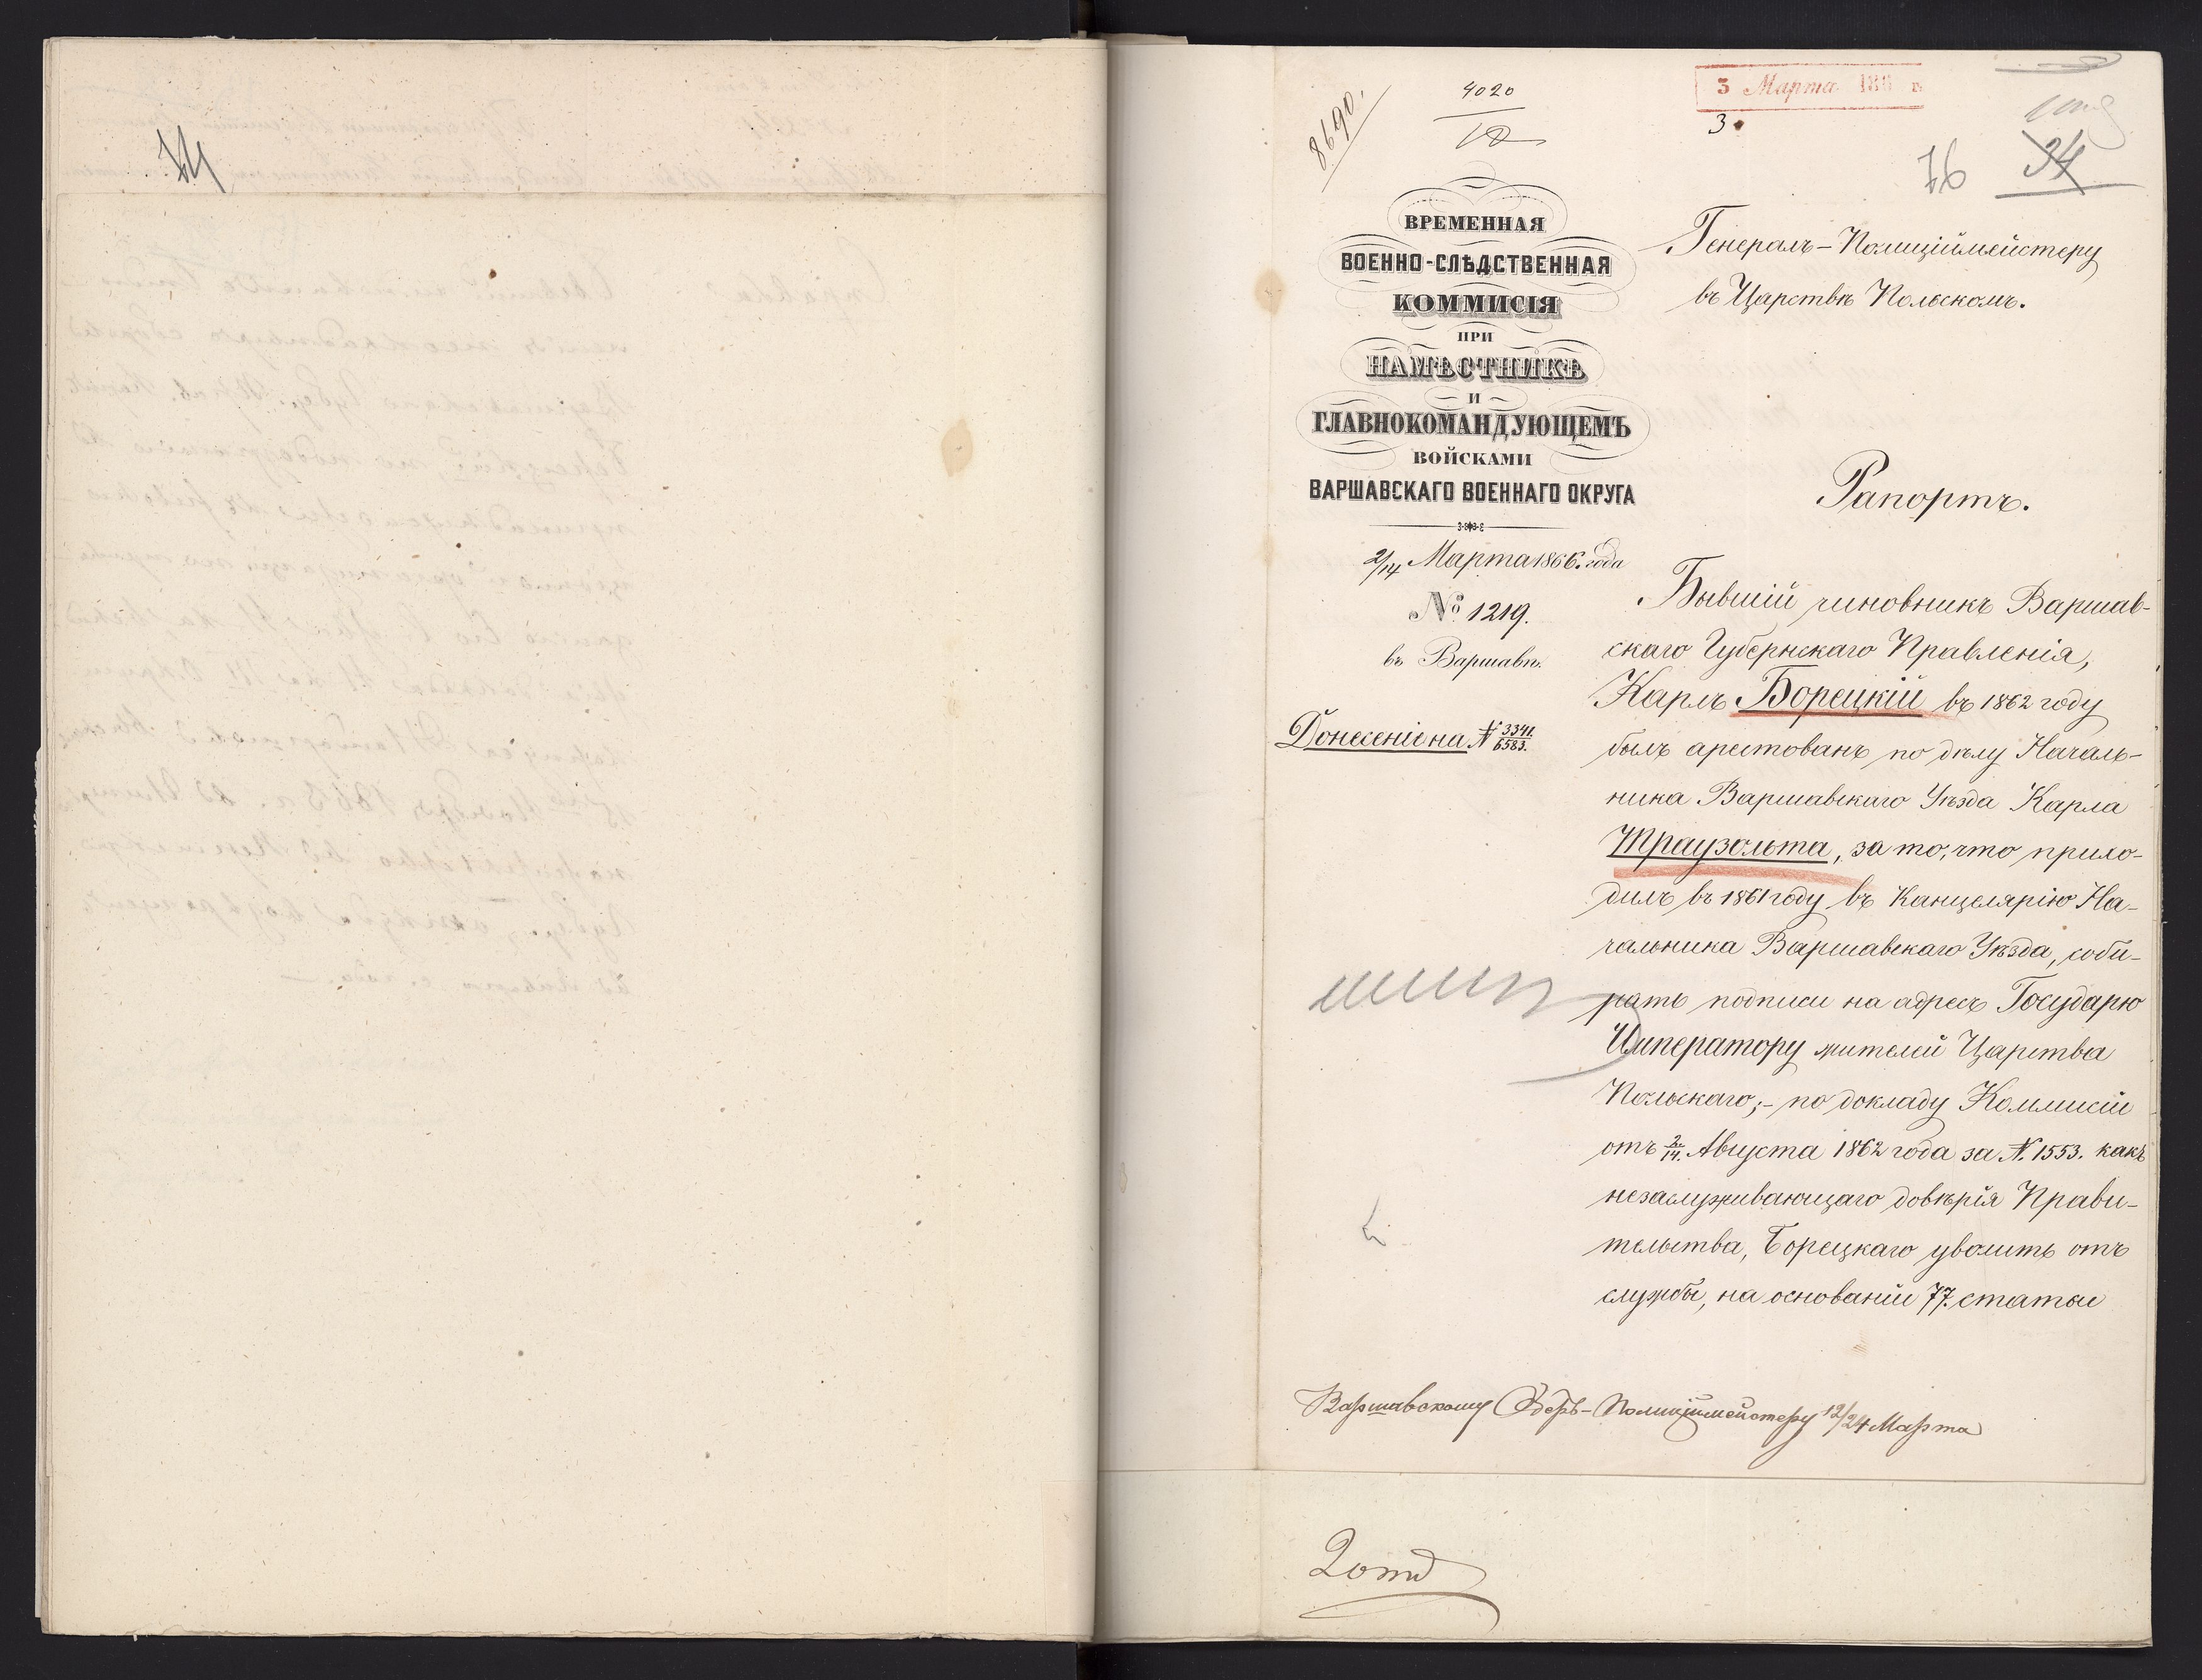 8690.
4020
18
3 Марта 186 г.
3
76
34
ВРЕМЕННАЯ
ВОЕННО-СЛѢДСТВЕННАЯ
КОММИСІЯ
ПРИ
НАМѢСТНИКѢ
И
ГЛАВНОКОМАНДУЮЩЕМЪ
ВОЙСКАМИ
ВАРШАВСКАГО ВОЕННАГО ОКРУГА
2/14 Марта 1866. года
№ 1219.
въ Варшавѣ.
Донесеніе на № 3341./6583.
Генералъ-Полиціймейстеру
въ Царствѣ Польскомъ.
Рапортъ.
Бывшій чиновникъ Варшав-
скаго Губернскаго Правленія,
Карлъ Борецкій въ 1862 году
былъ арестованъ по дѣлу Началь-
ника Варшавскаго Уѣзда Карла
Траузольта, за то, что прихо-
дилъ въ 1861 году въ Канцелярію На-
чальника Варшавскаго Уѣзда, соби-
рать подписи на адресъ Государю
Императору жителей Царства
Польскаго;- по докладу Коммисіи
отъ 2/14. Августа 1862 года за № 1553. какъ
незаслуживающаго довѣрія Прави-
тельства, Борецкаго уволить отъ
службы, на основаніи 77. статьи
Варшавскому Оберъ-Полиціймейстеру 12/24 Марта
2 отд